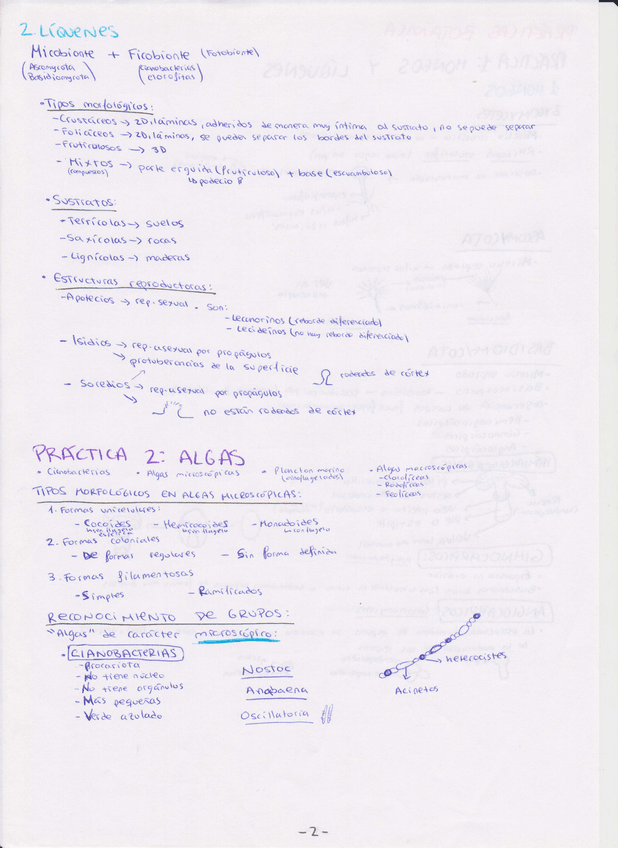 2. LÍQUENES
Micobionte + Ficobionte (Fotobionte)
(Ascomycota (cianobacterias
Basidiomycota) clorofitas)
• Tipos morfológicos:
- Crustáceos → 2D, láminas, adheridos de manera muy íntima al sustrato, no se puede separar
- Foliáceos → 2D, láminas, se puedes separar los bordes del sustrato
- Fruticulosos → 3D
- Mixtos → parte erguida (fruticuloso) + base (escuamuloso)
(compuestos) ↳ podecio
• Sustratos:
- Terrícolas → suelos
- Saxícolas → rocas
- Lignícolas → maderas
• Estructuras reproductoras:
- Apotecios → rep. sexual. Son:
- Lecanorinos (reborde diferenciado)
- Lecideinos (no hay reborde diferenciado)
- Isidios → rep. asexual por propágulos
→ protuberancias de la superficie rodeados de córtex
- Soredios → rep. asexual por propágulos
→ no están rodeados de córtex
PRÁCTICA 2: ALGAS
• Cianobacterias • Algas microscópicas • Plancton marino • Algas macroscópicas
(dinoflagelados) - Clorofíceas
- Rodofíceas
- Feofíceas
TIPOS MORFOLÓGICOS EN ALGAS MICROSCÓPICAS:
1. Formas unicelulares:
- Cocoides - Hemicocoides - Monadoides
2. Formas coloniales
- De formas regulares - Sin forma definida
3. Formas filamentosas
- Simples - Ramificados
RECONOCIMIENTO DE GRUPOS:
"Algas" de carácter microscópico:
• CIANOBACTERIAS
- Procariota
- No tiene núcleo
- No tiene orgánulos
- Más pequeñas
- Verde azulado
Nostoc
Anabaena
Oscillatoria
heterocistes
Acinetos
- 2 -